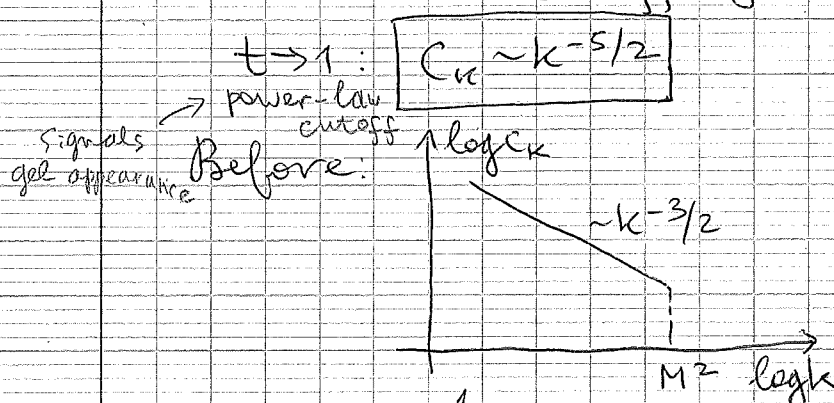 t → 1 : C_k ~ k^{-5/2}
power-law
cutoff
signals
gel appearance
Before:
log C_k
~ k^{-3/2}
M^2
log k